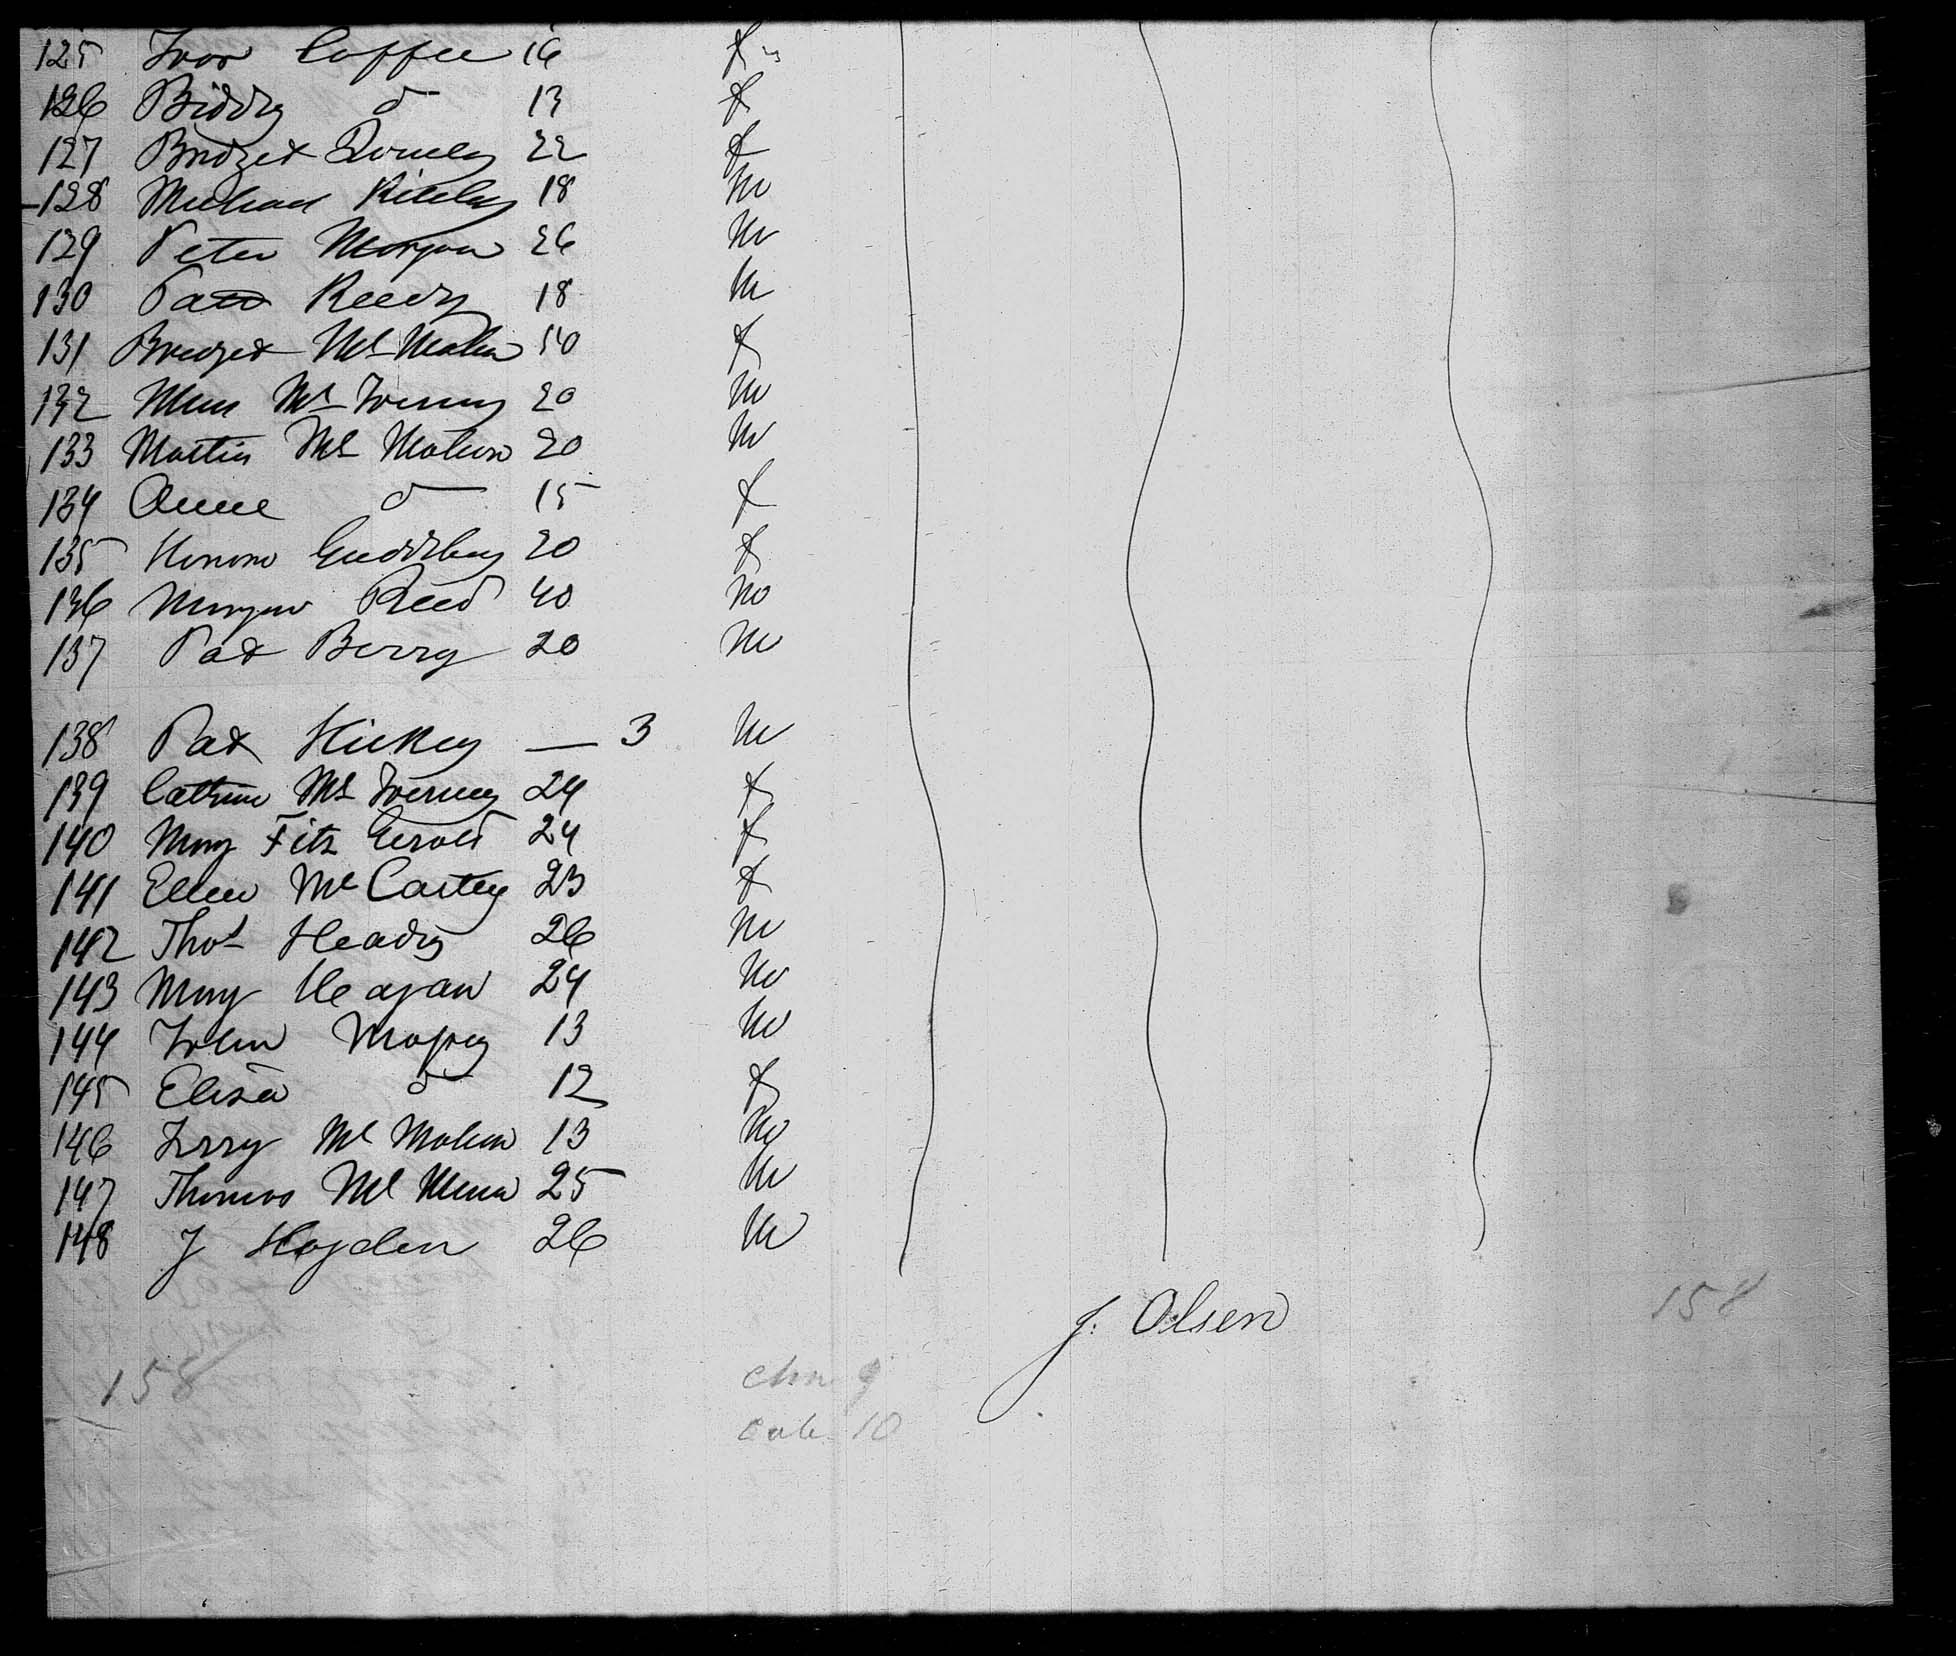 125 Coffee 16 f
126 Biddy do 13 f
127 Bridget 22 f
128 Michael 18 m
129 Peter Morgan 26 m
130 Patt Reedy 18 m
131 Bridget Mc Mahon 50 f
132 Mc 20 m
133 Martin Mc Mahon 20 m
134 Anne do 15 f
135 Honora 20 f
136 Morgan Reed 40 m
137 Pat Berry 20 m
138 Pat Hickey — 3 m
139 Cathrine Mc 24 f
140 Mary Fitz Gerald 24 f
141 Ellen Mc Cartey 23 f
142 Thos Headry 26 m
143 Mary Heagan 24 m
144 John 13 m
145 Elisa do 12 f
146 Mc Mahon 13 m
147 Thomas Mc 25 m
148 J Hayden 26 m
J. Olsen
158
158
chn 9
10